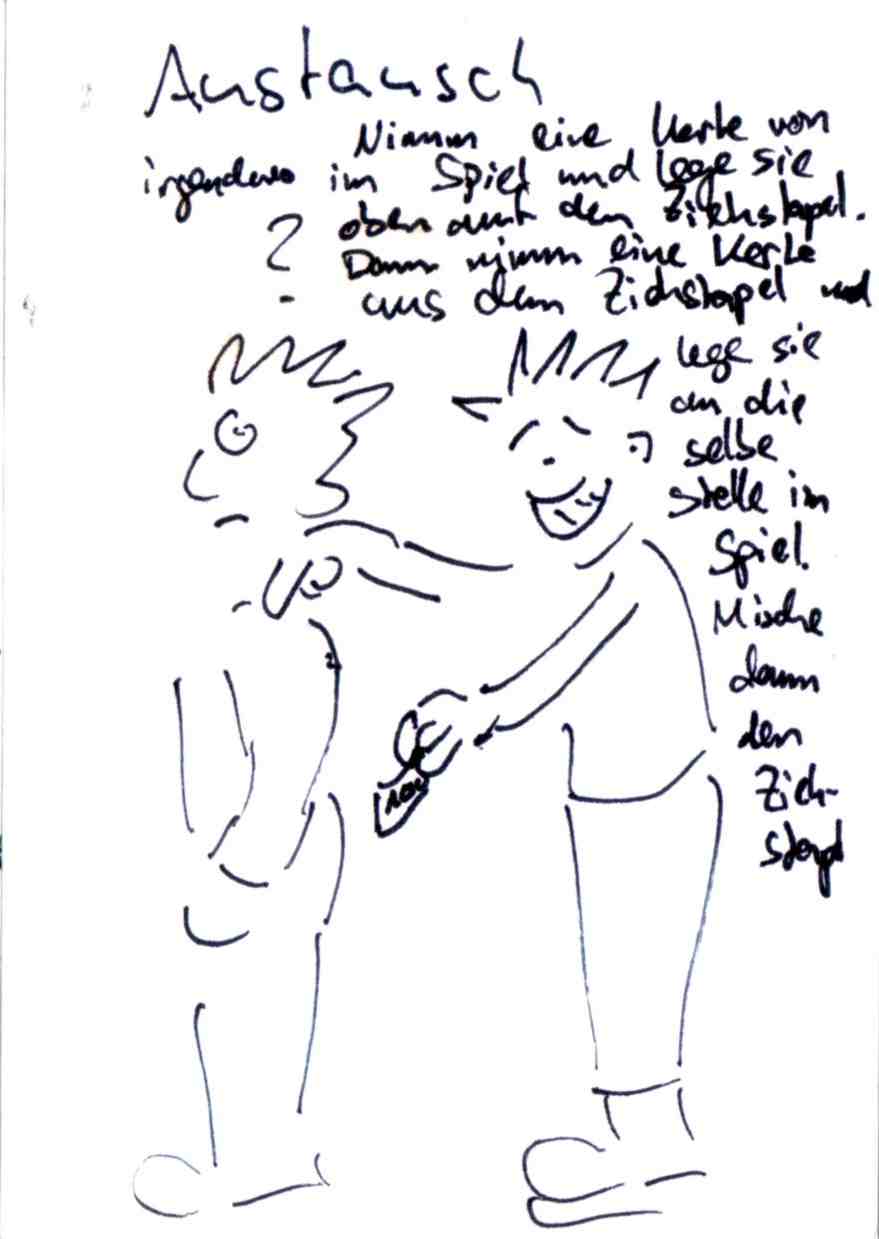 Austausch
Nimm eine Karte von
irgendwo im Spiel und lege sie
oben auf den Ziehstapel.
?
Dann nimm eine Karte
aus dem Ziehstapel und
lege sie
an die
selbe
stelle im
Spiel.
Mische
dann
den
Zieh-
stapel
100